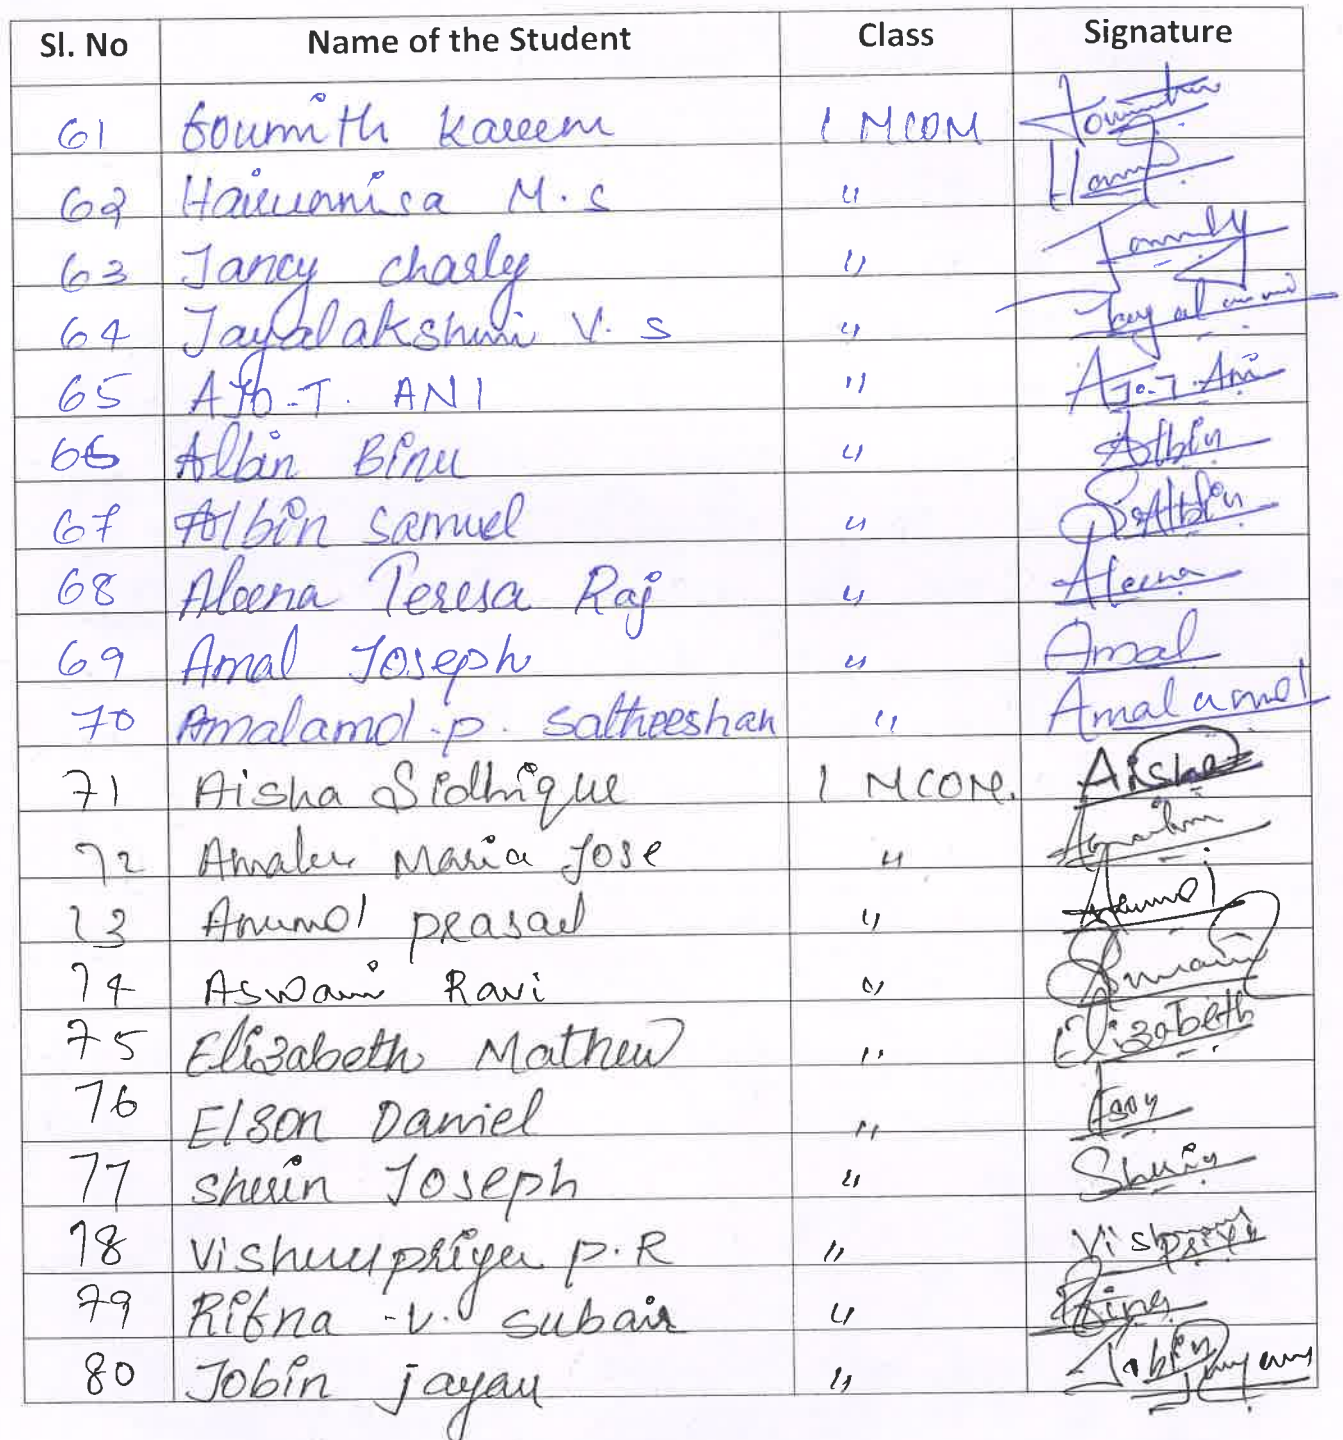 Sl. No Name of the Student Class Signature
61 Kareem I MCOM
62 M.S " Hann
63 Jancy charly "
64 Jayalakshmi V. S "
65 AJO.T. ANI " AJo.T.Ani
66 Albin Binu " Albin
67 Albin Samuel " S Albin
68 Aleena Teresa Raj " Aleena
69 Amal Joseph " Amal
70 Amalamol.p. Satheeshan " Amalamol
71 Aisha Sidhique I MCOM. Aisha
72 Maria Jose "
73 Anumol prasad " Anumol
74 Aswani Ravi "
75 Elizabeth Mathew " Elizabeth
76 Elson Daniel "
77 Sherin Joseph " Sherin
78 Vishnupriya P.R " Vishnupriya
79 Rifna .V. Subair "
80 Jobin jayan " Jobin Jayan